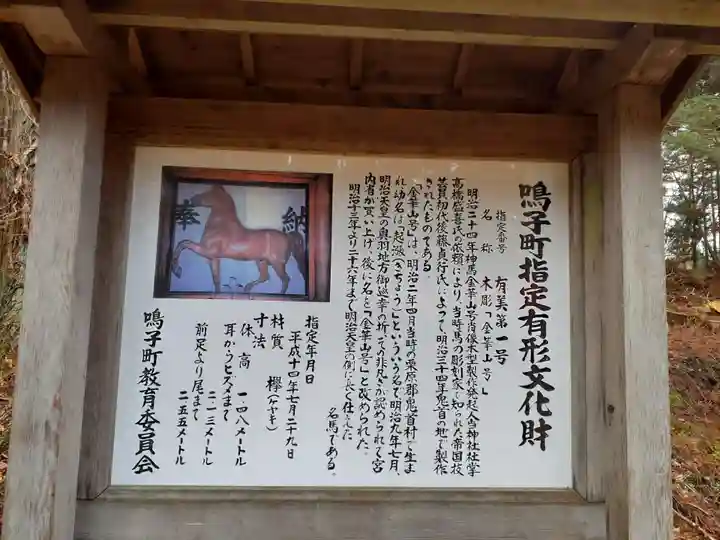 鳴子町指定有形文化財
指定番号 有美第一号
名称 木彫「金華山号」
明治二十四年神馬金華山号肖像木型製作発起人当神社社掌
高橋盛喜氏の依頼により、当時馬の彫刻家で知られた帝国技
芸員初代後藤貞行氏によって、明治三十四年鬼首の地で製作
されたものである。
「金華山号」は、明治二年四月当時の栗原郡鬼首村で生ま
れ幼名は「起漲(きちょう)」といういう名で明治九年七月、
明治天皇の奥羽地方御巡幸の折、その非凡さが認められて宮
内省が買い上げ、後に名を「金華山号」と改められた。
明治十三年より二十六年まで明治天皇の側に長く仕えた
名馬である。
奉納
指定年月日
平成十四年七月二十九日
材質 欅(ケヤキ)
寸法
体高 一・四八メートル
耳からヒズメまで
二・一三メートル
前足より尾まで
二・五五メートル
鳴子町教育委員会